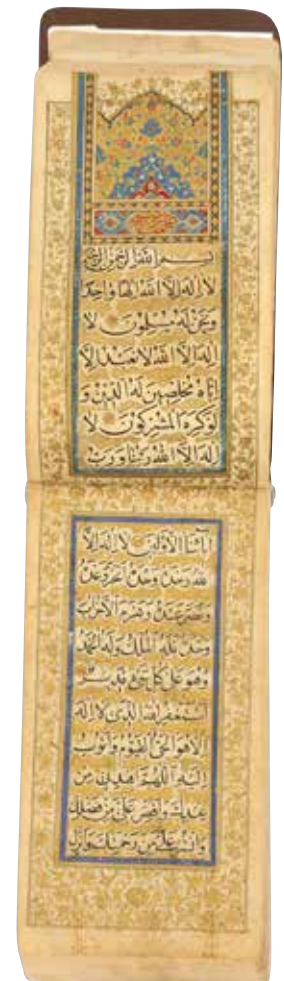 بسم الله الرحمن الرحيم
لا اله الا الله الها واحدا
ونحن له مسلمون لا
اله الا الله لا نعبد الا
اياه مخلصين له الدين و
لو كره المشركون لا
اله الا الله ربنا و رب
ابائنا الاولين لا اله الا
الله وحده وحده انجز وعده
ونصر عبده وهزم الاحزاب
وحده فله الملك وله الحمد
وهو على كل شئ قدير
استغفر الله الذي لا اله
الا هو الحي القيوم واتوب
اليه اللهم اهدني من
عندك وافض علي من فضلك
وانشر علي من رحمتك وانزل